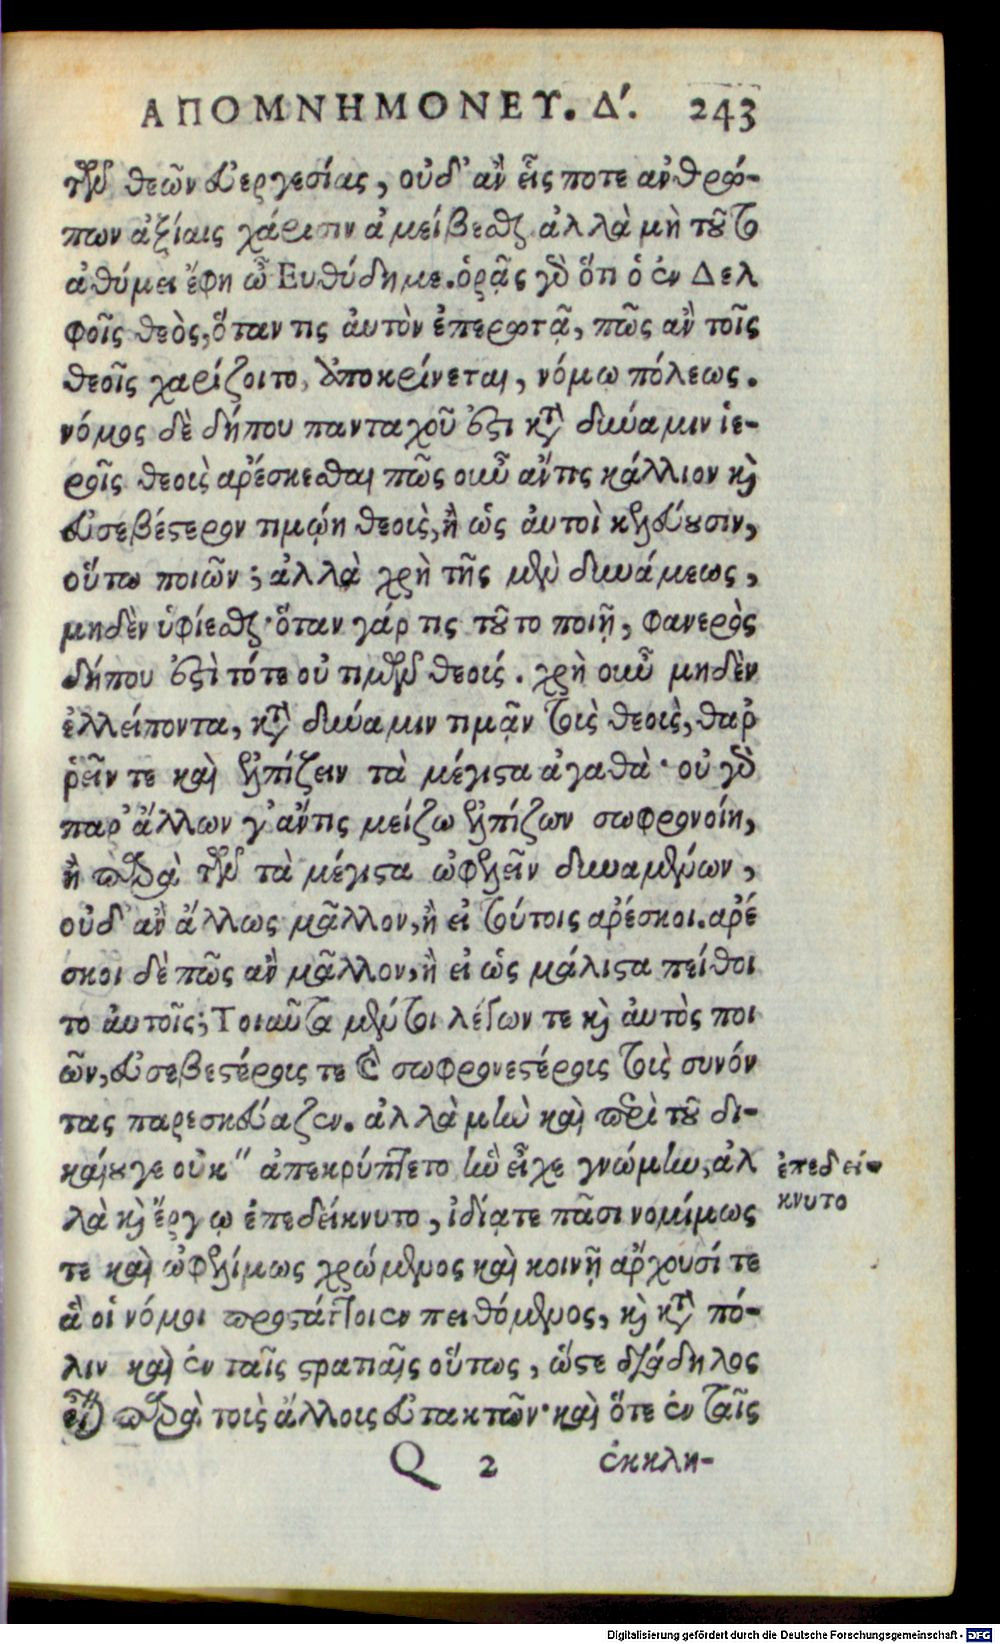 ΑΠΟΜΝΗΜΟΝΕΥ. Δ'. 243
τῶν θεῶν εὐεργεσίας, οὐδ' ἂν εἷς ποτε ἀνθρώ-
πων ἀξίαις χάρισιν ἀμείβεσθαι. ἀλλὰ μὴ τοῦτο
ἀθύμει ἔφη ὦ Εὐθύδημε. ὁρᾷς γὸ ὅτι ὁ ἐν Δελ
φοῖς θεὸς, ὅταν τις ἀυτὸν ἐπερωτᾷ, πῶς ἂν τοῖς
θεοῖς χαρίζοιτο, ἀποκρίνεται, νόμῳ πόλεως.
νόμος δὲ δήπου πανταχοῦ ἐστι κατὰ δύναμιν ἱε-
ροῖς θεοὺς ἀρέσκεσθαι πῶς οὖν ἄν τις κάλλιον καὶ
εὐσεβέστερον τιμῴη θεοὺς, ἢ ὡς ἀυτοὶ κελεύουσιν,
οὕτω ποιῶν; ἀλλὰ χρὴ τῆς μὲν δυνάμεως,
μηδὲν ὑφίεσθαι· ὅταν γάρ τις τοῦτο ποιῇ, φανερὸς
δήπου ἐστὶ τότε οὐ τιμῶν θεούς. χρὴ οὖν μηδὲν
ἐλλείποντα, κατὰ δύναμιν τιμᾷν τοὺς θεοὺς, θαῤ
ῥεῖν τε καὶ ἐλπίζειν τὰ μέγιστα ἀγαθά· οὐ γὸ
παρ' ἄλλων γ' ἄν τις μείζω ἐλπίζων σωφρονοίη,
ἢ παρὰ τῶν τὰ μέγιστα ὠφελεῖν δυναμένων,
οὐδ' ἂν ἄλλως μᾶλλον, ἢ εἰ τούτοις ἀρέσκοι. ἀρέ
σκοι δὲ πῶς ἂν μᾶλλον, ἢ εἰ ὡς μάλιστα πείθοι
το ἀυτοῖς; Τοιαῦτα μέντοι λέγων τε καὶ ἀυτὸς ποι
ῶν, εὐσεβεστέρους τε καὶ σωφρονεστέρους τοὺς συνόν
τας παρεσκεύαζεν. ἀλλὰ μὴν καὶ περὶ τοῦ δι-
καίου γε οὐκ" ἀπεκρύπτετο ἣν εἶχε γνώμην, ἀλ
λὰ καὶ ἔργῳ ἐπεδείκνυτο, ἰδίᾳ τε πᾶσι νομίμως
τε καὶ ὠφελίμως χρώμενος καὶ κοινῇ ἄρχουσί τε
ἃ οἱ νόμοι προστάττοιεν πειθόμενος, καὶ κατὰ πό-
λιν καὶ ἐν ταῖς στρατιαῖς οὕτως, ὥστε διάδηλος
εἶναι παρὰ τοὺς ἄλλους εὐτακτῶν· καὶ ὅτε ἐν ταῖς
ἐπεδεί-
κνυτο
Q 2 ἐκκλη-
Digitalisierung gefördert durch die Deutsche Forschungsgemeinschaft - DFG